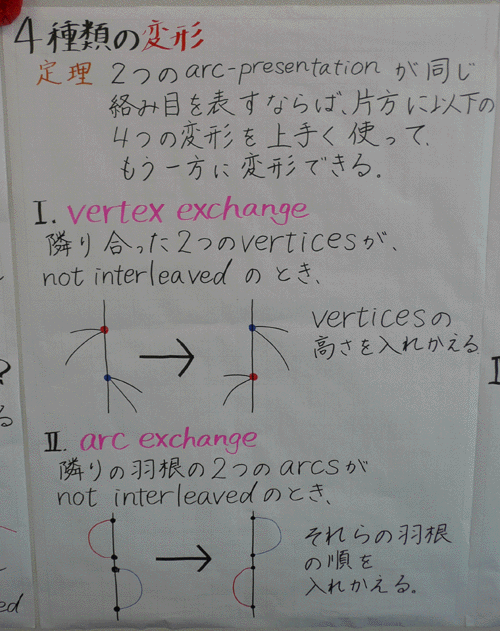 4種類の変形
定理 2つのarc-presentationが同じ
絡み目を表すならば、片方に以下の
4つの変形を上手く使って、
もう一方に変形できる。
I. vertex exchange
隣り合った2つのverticesが、
not interleavedのとき、
verticesの
高さを入れかえる
II. arc exchange
隣りの羽根の2つのarcsが
not interleavedのとき、
それらの羽根
の順を
入れかえる。
?
る
I
ed